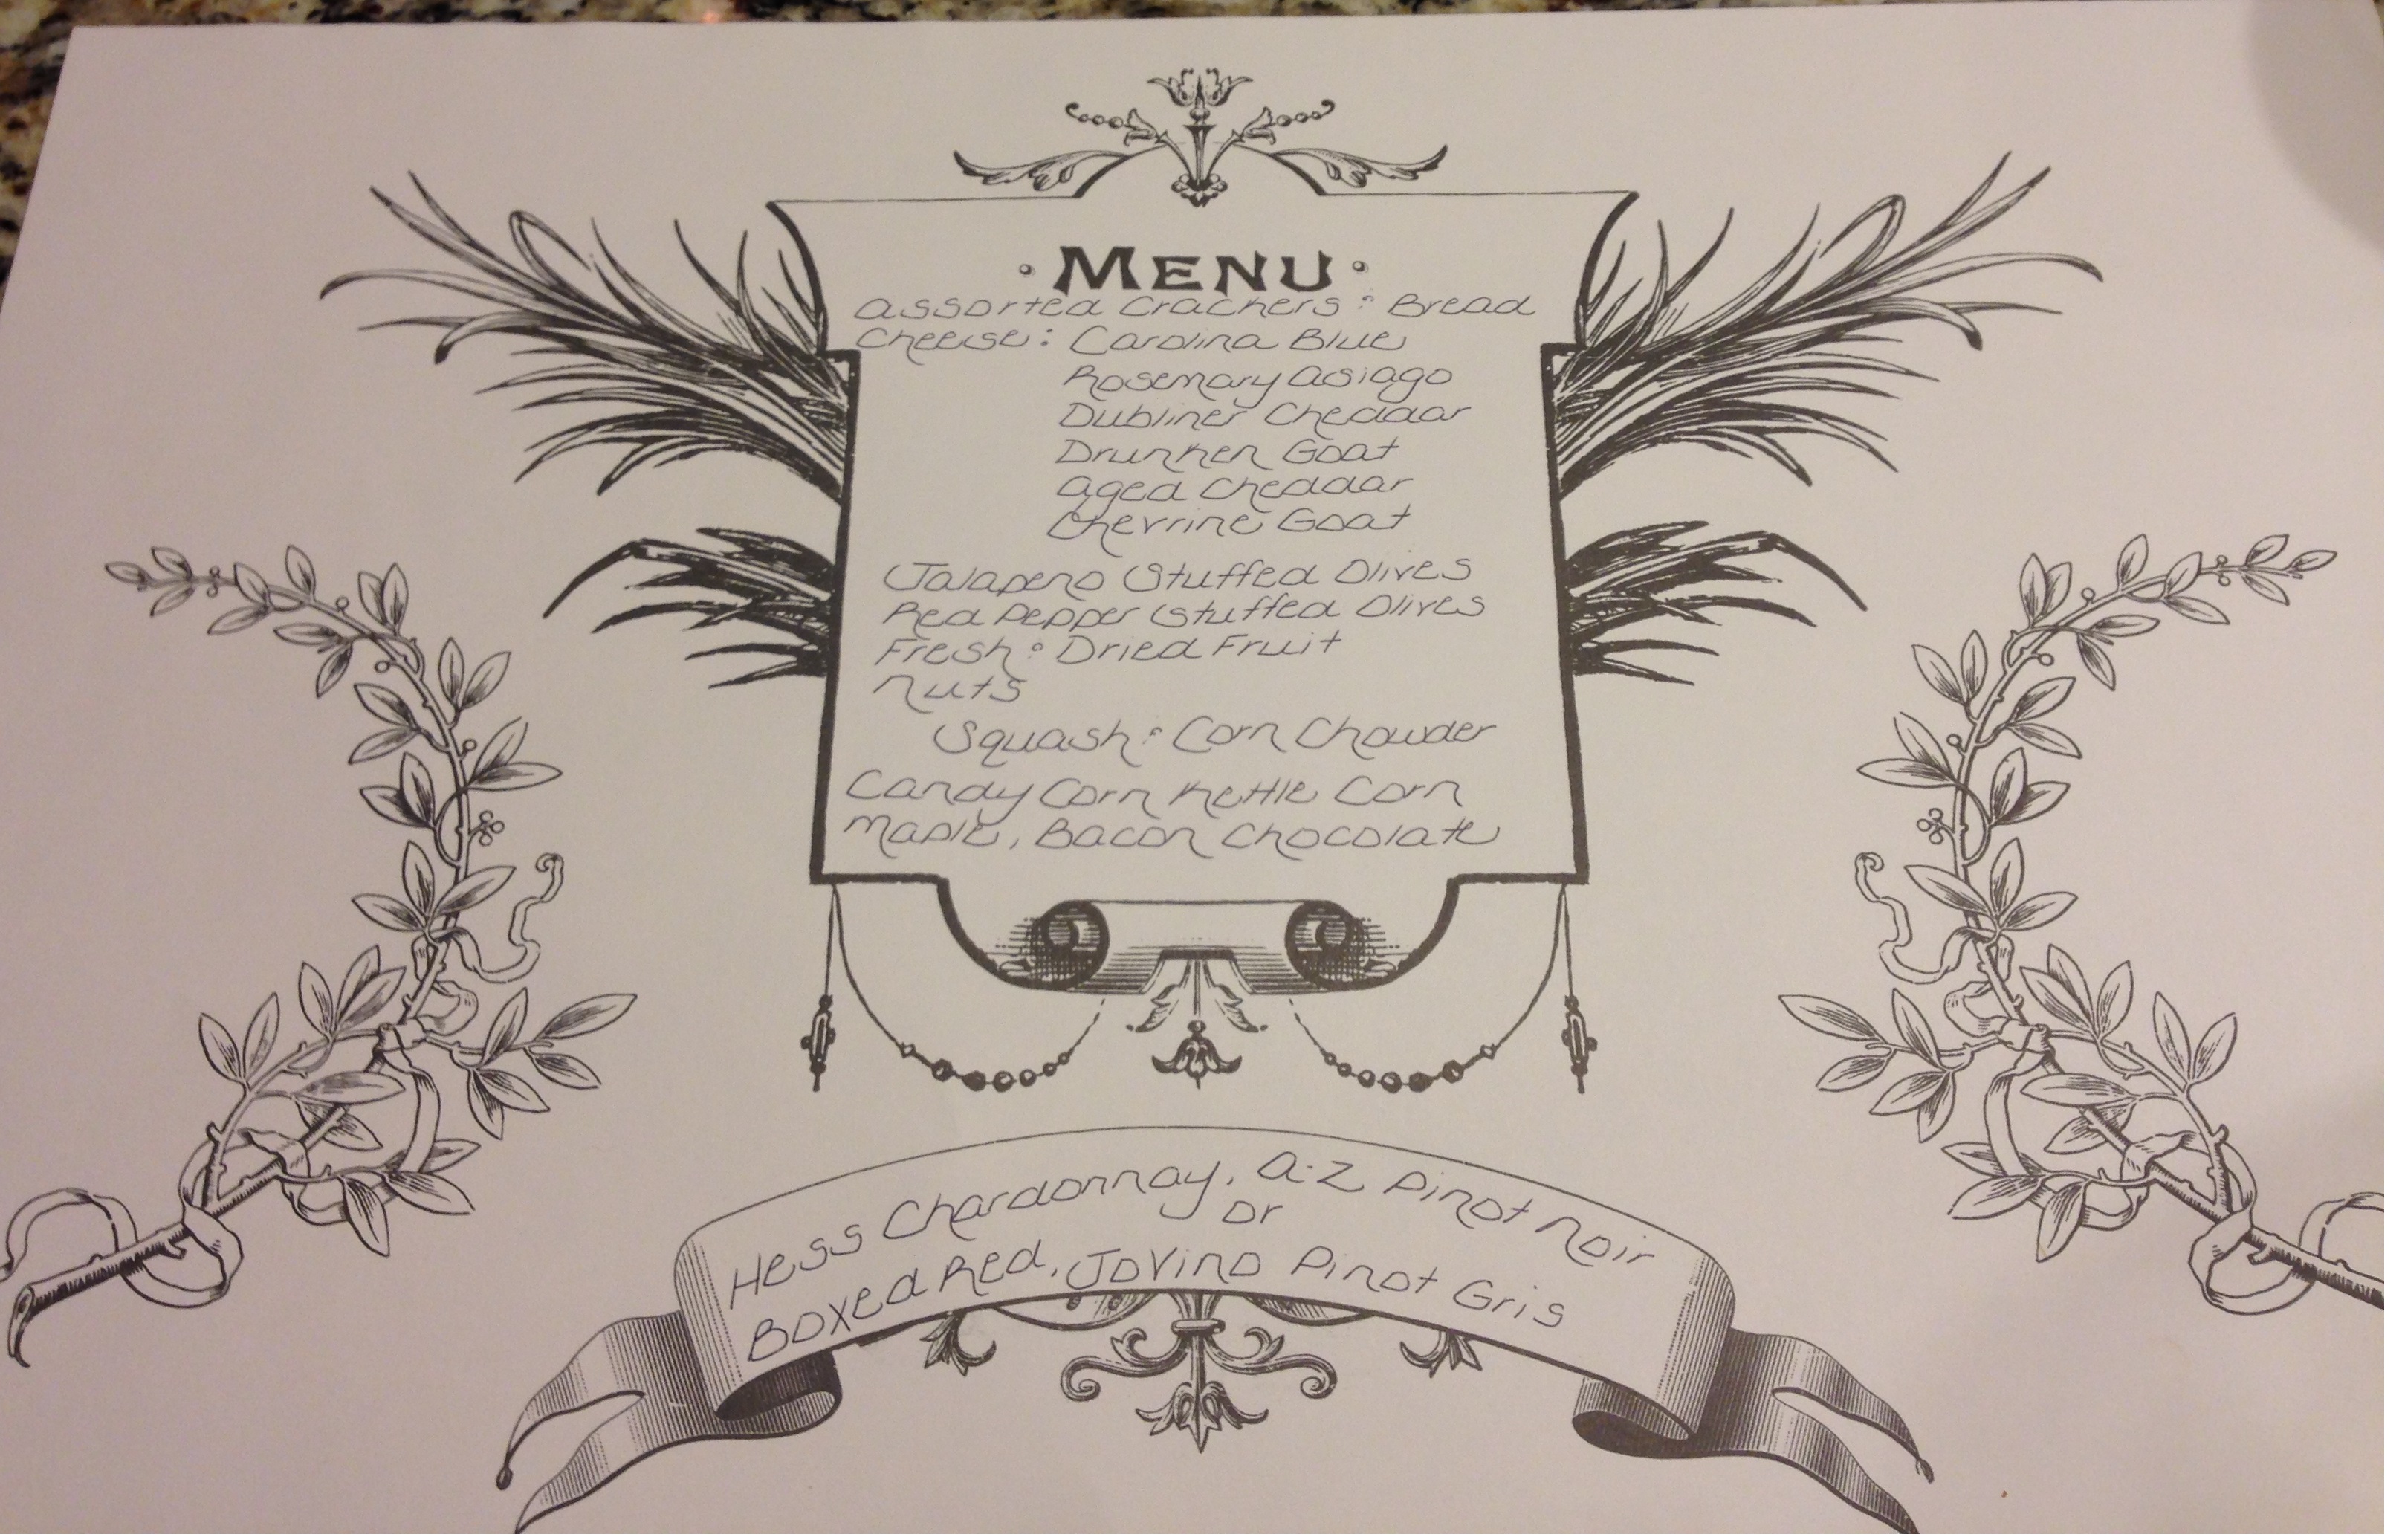 · MENU ·
Assorted Crackers : Bread
Cheese: Carolina Blue
Rosemary Asiago
Dubliner Cheddar
Drunken Goat
Aged Cheddar
Chevrine Goat
Jalapeno Stuffed Olives
Red Pepper Stuffed Olives
Fresh : Dried Fruit
Nuts
Squash : Corn Chowder
Candy Corn Kettle Corn
Maple, Bacon Chocolate
Hess Chardonnay, A:Z Pinot Noir
or
Boxed Red, Jovino Pinot Gris